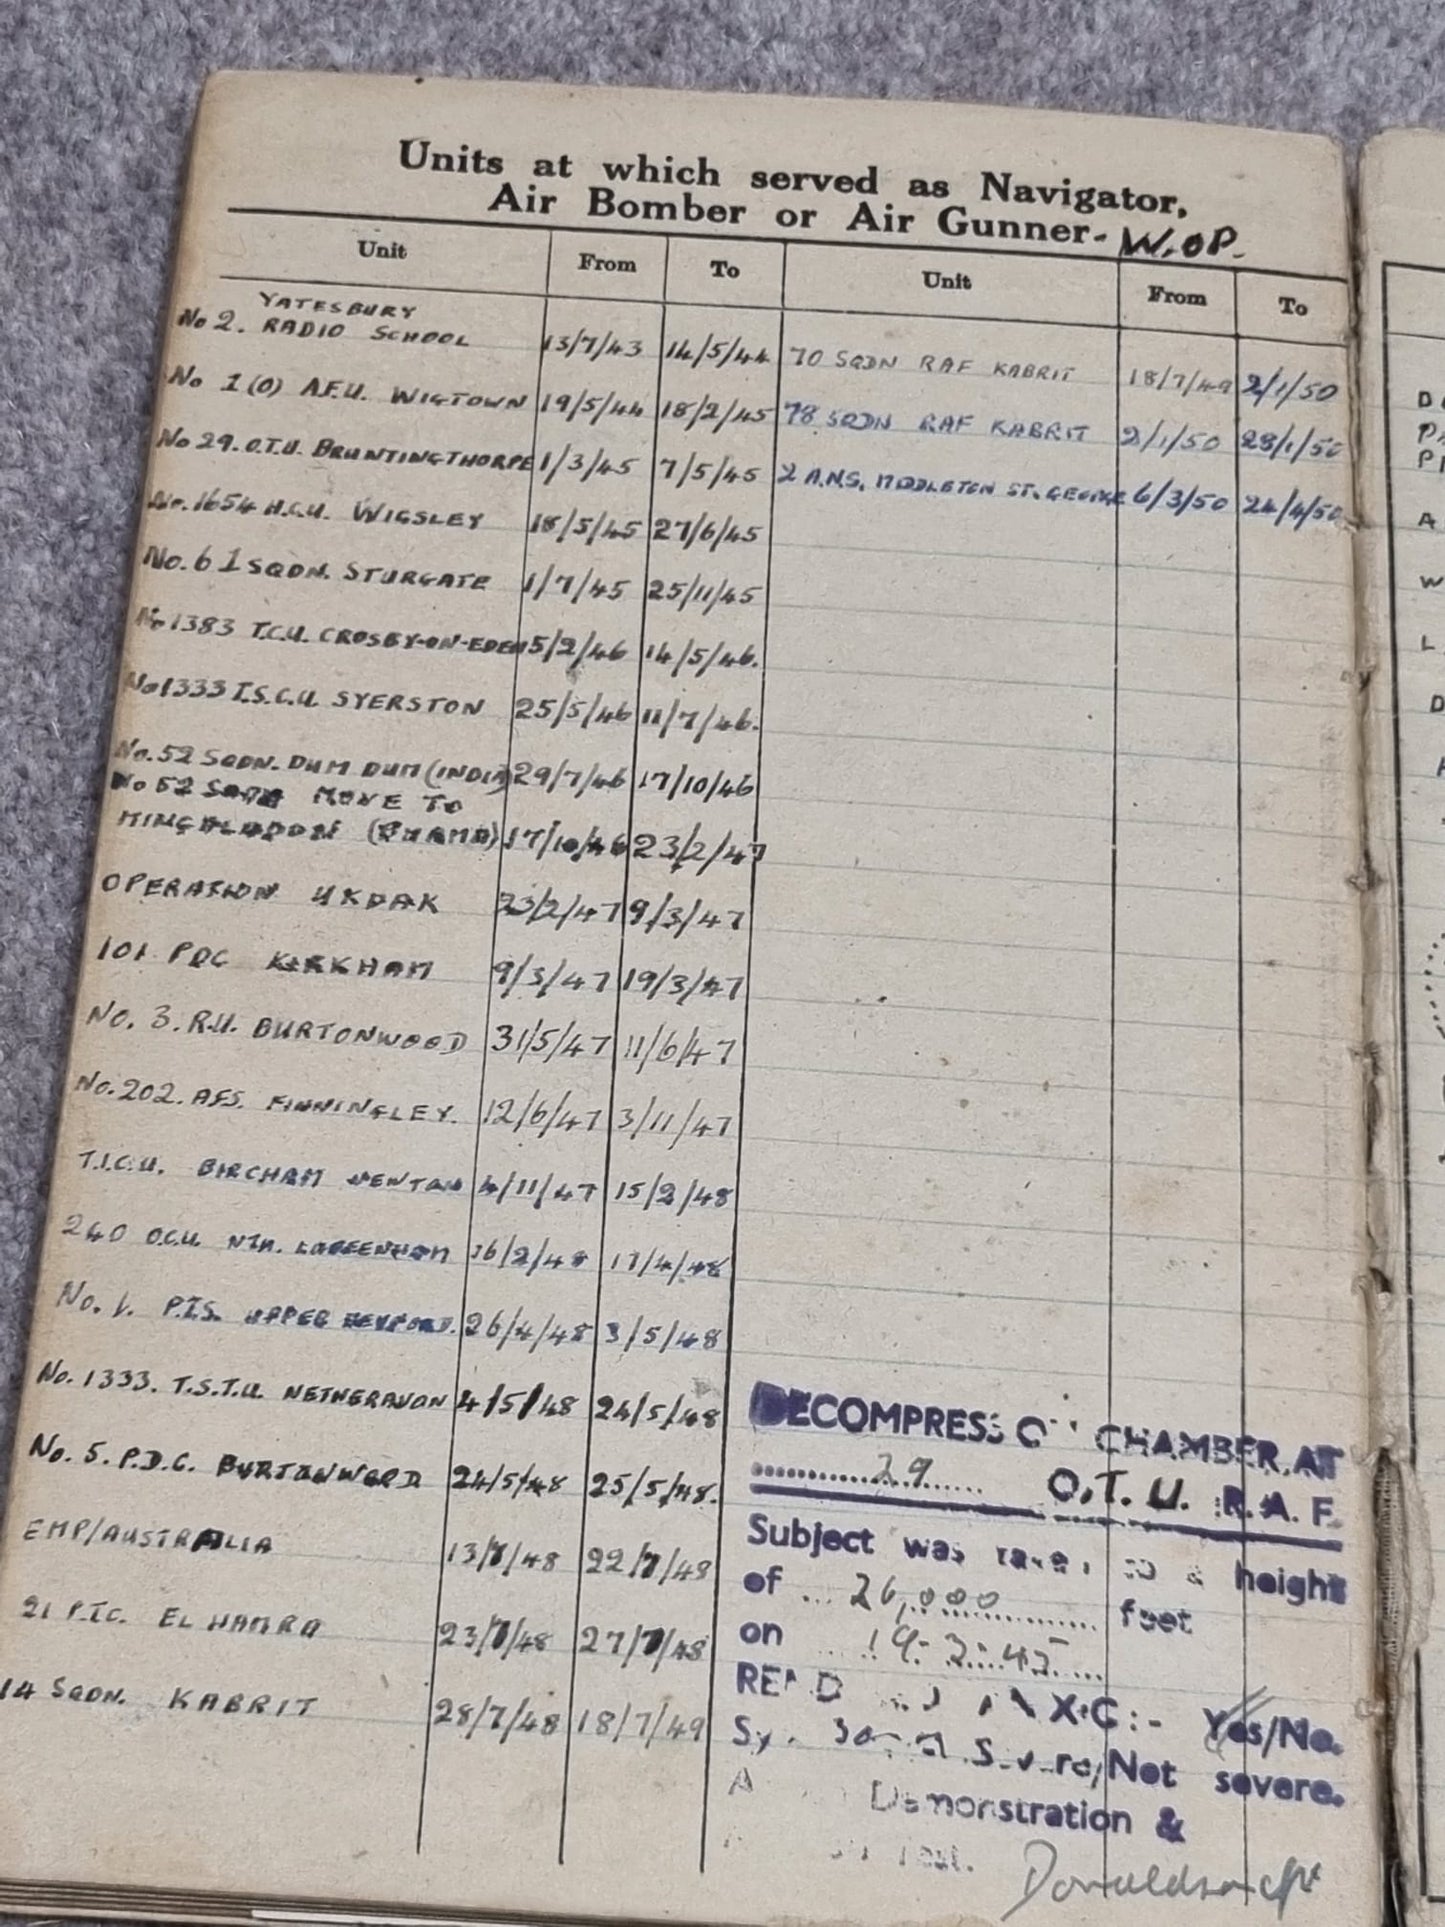 Units at which served as Navigator,
Air Bomber or Air Gunner- W.OP.
Unit From To Unit From To
YATESBURY
No 2. RADIO SCHOOL 13/7/43 14/5/44
No 1(O) A.F.U. WIGTOWN 19/5/44 18/2/45
No 29. O.T.U. BRUNTINGTHORPE 1/3/45 7/5/45
No. 1654 H.C.U. WIGSLEY 18/5/45 27/6/45
No. 61 SQDN. STURGATE 1/7/45 25/11/45
No 1383 T.C.U. CROSBY-ON-EDEN 5/2/46 14/5/46.
No 1333 T.S.C.U. SYERSTON 25/5/46 11/7/46.
No. 52 SQDN. DUM DUM (INDIA) 29/7/46 17/10/46
No 52 SQDN MOVE TO
MINGALADON (BURMA) 17/10/46 23/2/47
OPERATION UKDAK 23/2/47 9/3/47
101 PDC KIRKHAM 9/3/47 19/3/47
No. 3. R.U. BURTONWOOD 31/5/47 11/6/47
No. 202. AFS. FINNINGLEY. 12/6/47 3/11/47
T.I.C.U. BIRCHAM NEWTON 4/11/47 15/2/48
240 O.C.U. NTH. LUFFENHAM 16/2/48 17/4/48
No. 1. P.T.S. UPPER HEYFORD. 26/4/48 3/5/48
No. 1333. T.S.T.U. NETHERAVON 4/5/48 24/5/48
No. 5. P.D.C. BURTONWOOD 24/5/48 25/5/48.
EMP/AUSTRALIA 13/7/48 22/7/48
21 P.T.C. EL HAMRA 23/7/48 27/7/48
14 SQDN. KABRIT 28/7/48 18/7/49
70 SQDN RAF KABRIT 18/7/49 2/1/50
78 SQDN RAF KABRIT 2/1/50 28/1/50
2 A.N.S. MIDDLETON ST. GEORGE 6/3/50 24/4/50
DECOMPRESSION CHAMBER AT
29 O.T.U. R.A.F.
Subject was taken to a height
of 26,000 feet
on 19-3-45
X-C:- Yes/No.
Severe/Not severe.
Demonstration &
test.
Donaldson